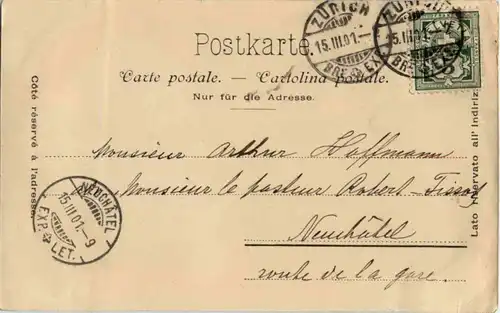 Postkarte.
Carte postale. — Cartolina postale.
Nur für die Adresse.
Côté réservé à l'adresse.
Lato riservato all' indirizzo
ZÜRICH
15.III.01.-
BRF. EXP.
ZÜRICH
15.III.01.
BRF. EXP.
Monsieur Arthur Hoffmann
Monsieur le pasteur Robert-Tissot
Neuchâtel
route de la gare.
NEUCHÂTEL
15.III.01.-9
EXP. LET.